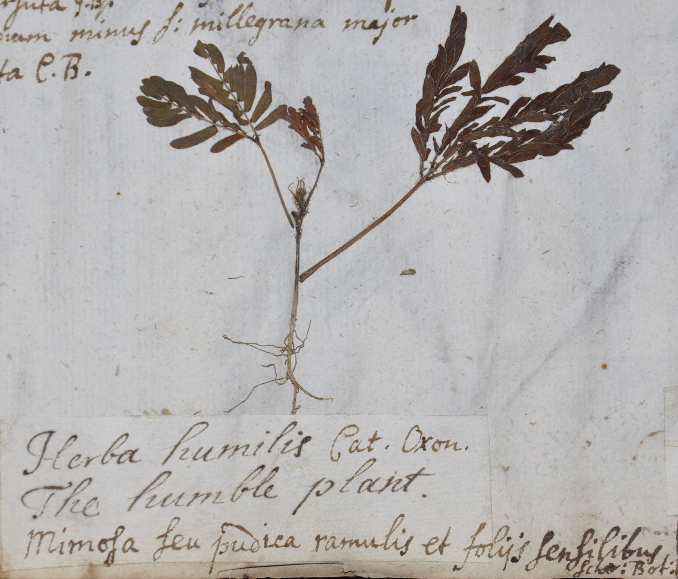 minus s: millegrana major
ta C.B.
Herba humilis Cat. Oxon.
The humble plant.
Mimosa seu pudica ramulis et folijs sensilibus
Bot: